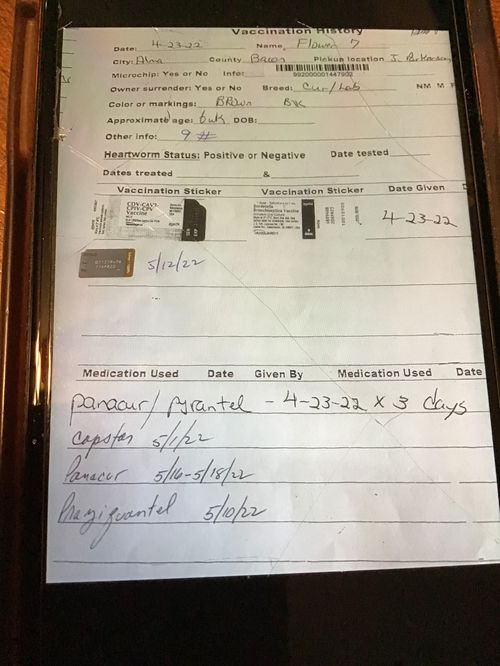 Vaccination History
Date: 4-23-22 Name Flower 7
City: Alma County Bacon Pickup location J. Parkerson
Microchip: Yes or No Info: 992000001447902
Owner surrender: Yes or No Breed: Cur/Lab NM M F
Color or markings: Brown BK
Approximate age: 6wk DOB:
Other info: 9 #
Heartworm Status: Positive or Negative Date tested
Dates treated &
Vaccination Sticker Vaccination Sticker Date Given
CDV-CAV2-
CPIV-CPV
Vaccine
Bordetella
Bronchiseptica Vaccine
4-23-22
5/12/22
Medication Used Date Given By Medication Used Date
panacur/pyrantel - 4-23-22 x 3 days
Capstar 5/1/22
Panacur 5/16-5/18/22
Praziquantel 5/10/22